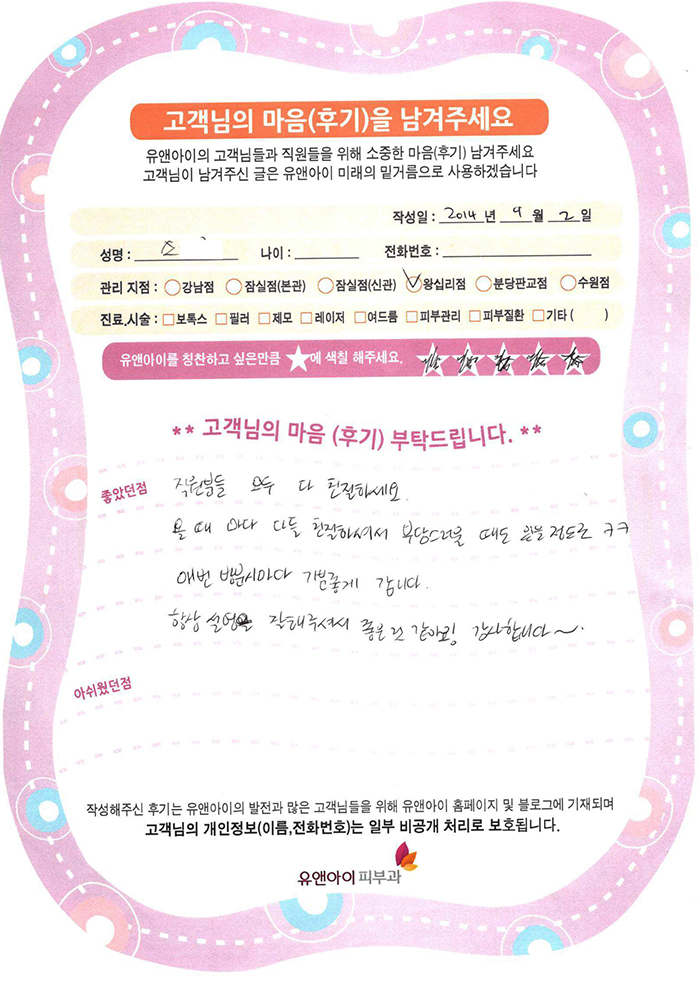 고객님의 마음(후기)을 남겨주세요
유앤아이의 고객님들과 직원들을 위해 소중한 마음(후기) 남겨주세요
고객님이 남겨주신 글은 유앤아이 미래의 밑거름으로 사용하겠습니다
작성일 : 2014 년 9 월 2 일
성명 : 나이 : 전화번호 :
관리 지점 : 강남점 잠실점(본관) 잠실점(신관) 왕십리점 분당판교점 수원점
진료,시술 : 보톡스 필러 제모 레이저 여드름 피부관리 피부질환 기타 ( )
유앤아이를 칭찬하고 싶은만큼 ★에 색칠 해주세요.
** 고객님의 마음 (후기) 부탁드립니다. **
좋았던점
직원분들 모두 다 친절하세요.
올 때 마다 다들 친절하셔서 부담스러울 때도 있을 정도로 ㅋㅋ
매번 방문시마다 기분좋게 갑니다.
항상 설명을 잘해주셔서 좋은것 같아요! 감사합니다~.
아쉬웠던점
작성해주신 후기는 유앤아이의 발전과 많은 고객님들을 위해 유앤아이 홈페이지 및 블로그에 기재되며
고객님의 개인정보(이름,전화번호)는 일부 비공개 처리로 보호됩니다.
유앤아이 피부과